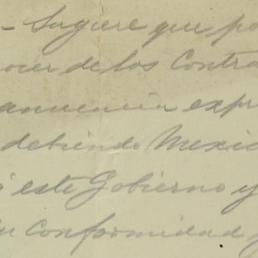 - Sugiere que po
ocer de los Contra
anuencia expr
debiendo Mexic
á este Gobierno y
su conformidad y